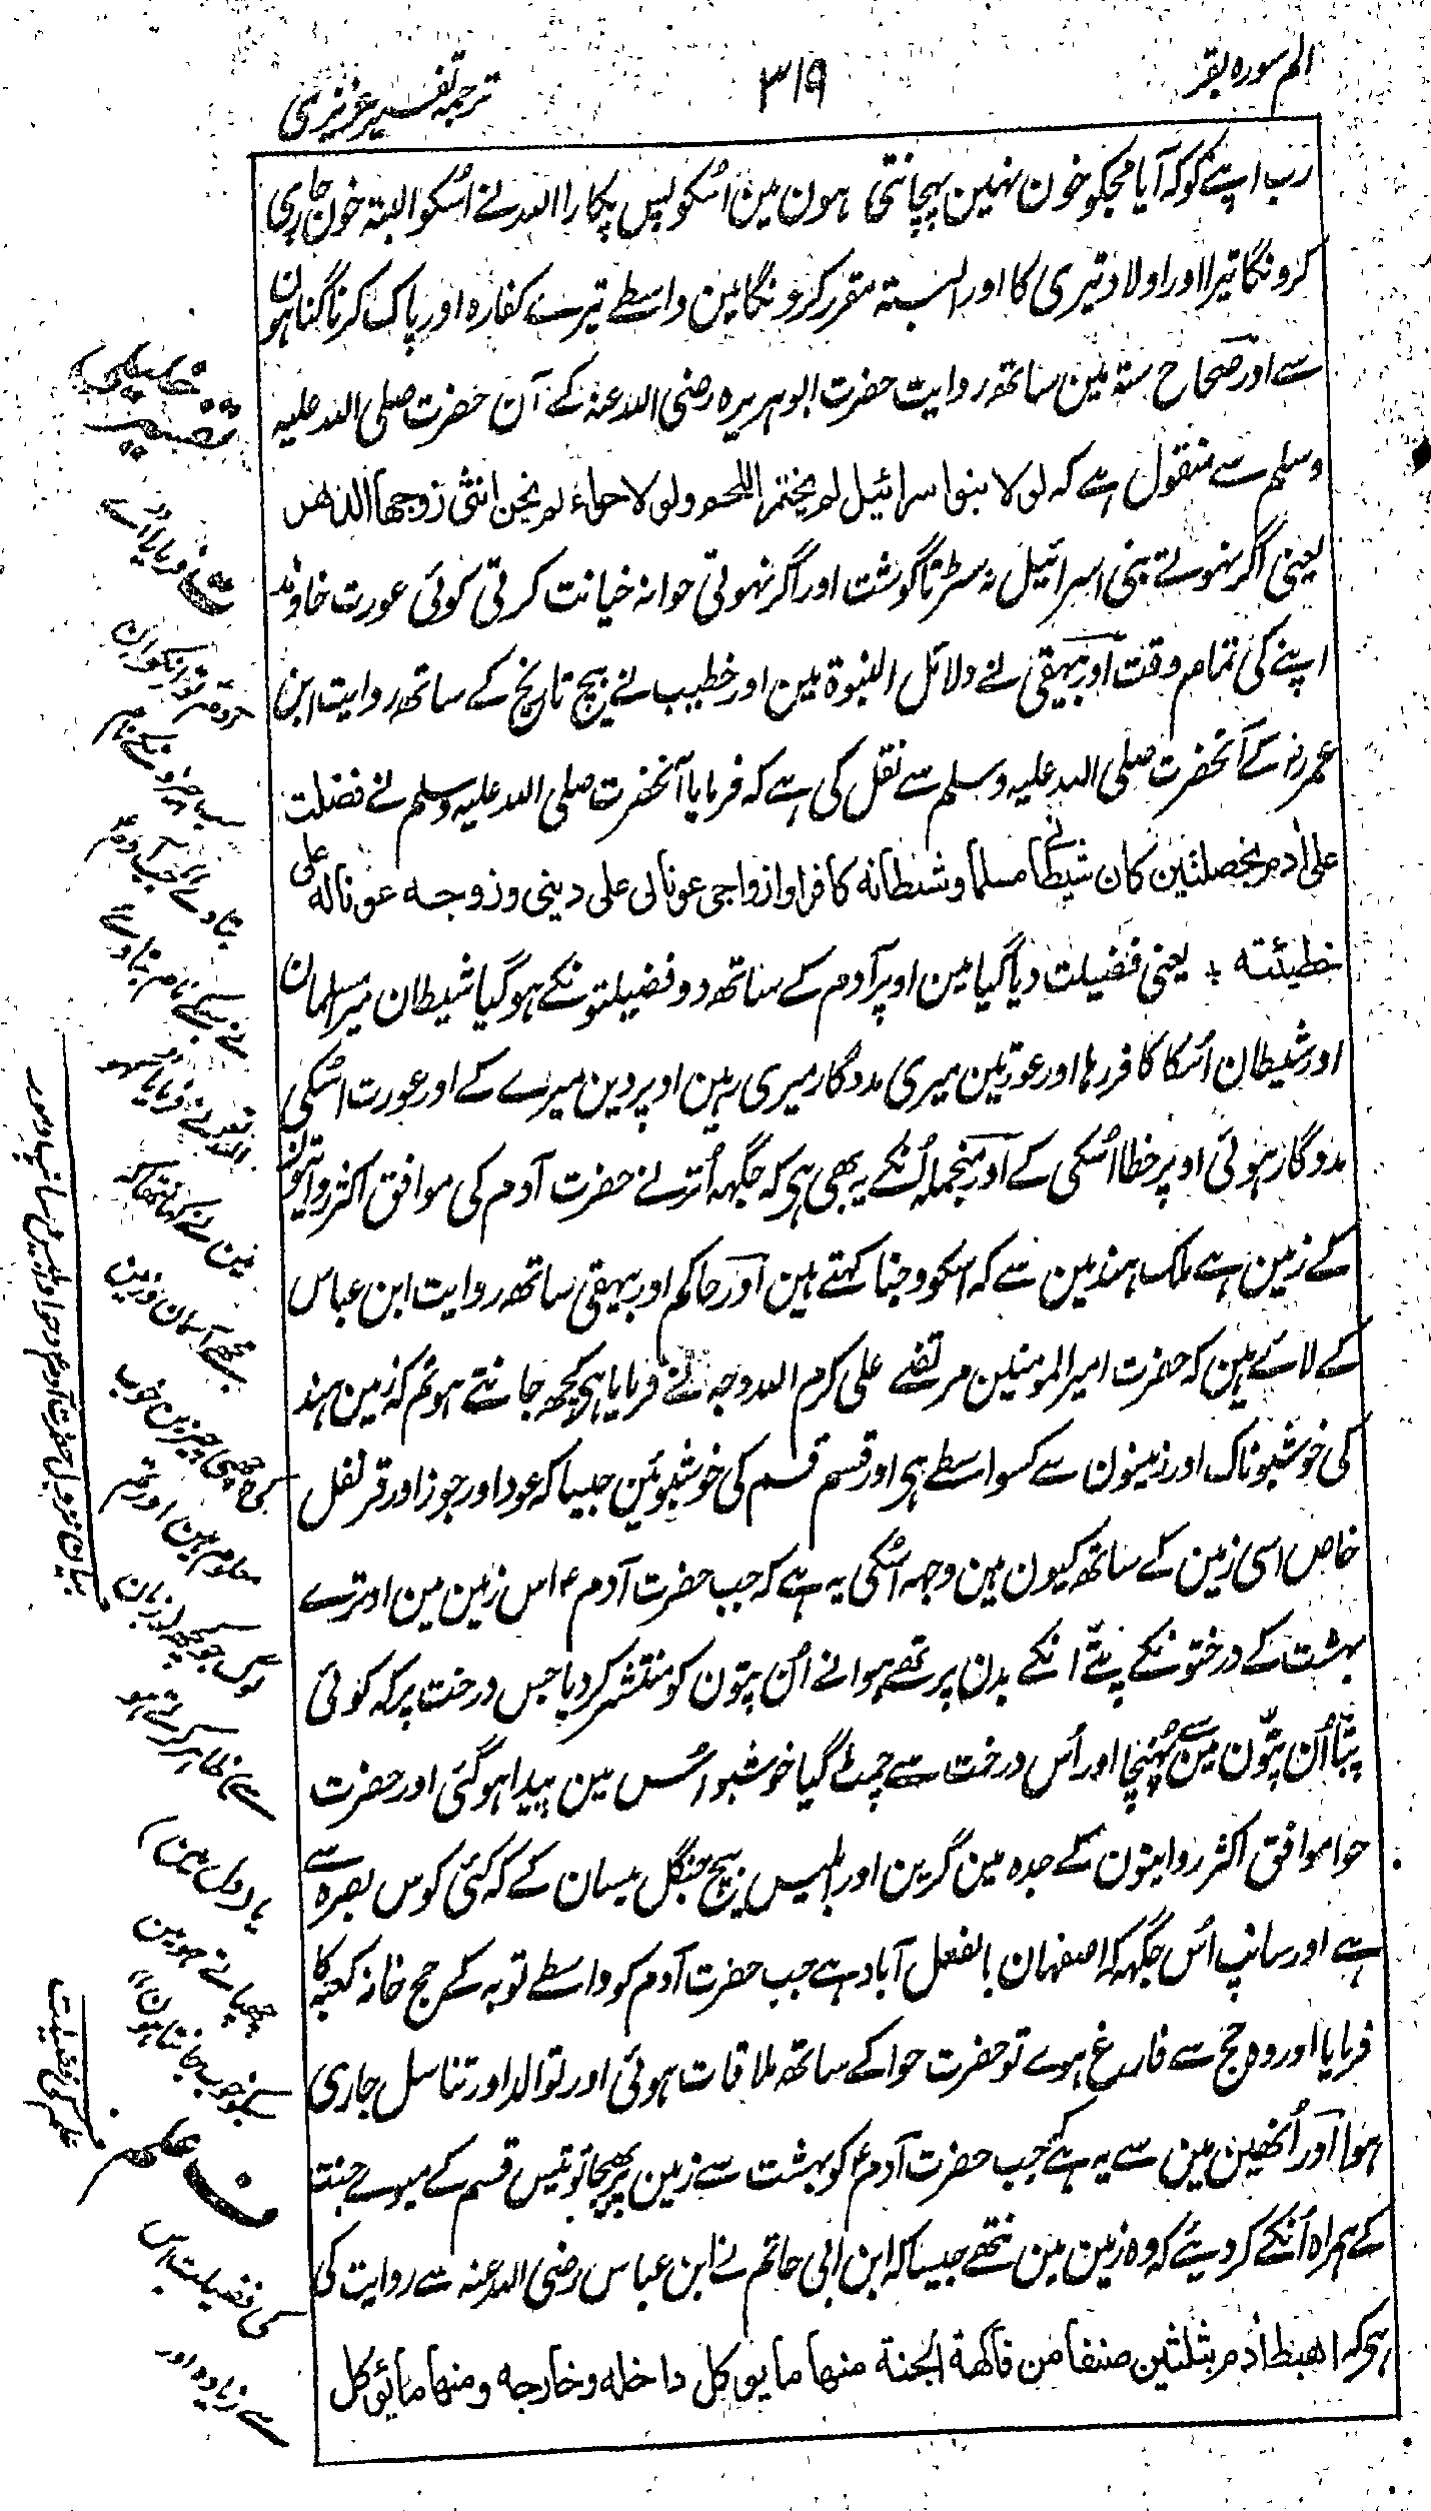 الم سورہ بقر
۳۱۹
ترجمہ تفسیر عزیزی
رب اپنے کو کہ آیا مجکو خون نہین پہچانتی ہون مین اُسکو پس پکارا اللہ نے اُسکو البتہ خون جاری
کرونگا تیرا اور اولاد تیری کا اور البتہ مقرر کرونگا مین واسطے تیرے کفارہ اور پاک کرنا گناہون
سے اور صحاح ستہ مین ساتھ روایت حضرت ابوہریرہ رضی اللہ عنہ کے آن حضرت صلی اللہ علیہ
وسلم سے منقول ہے کہ لولا بنو اسرائیل لم یختمر اللحم ولولا حواء لم یخن انثی زوجھا الدھر
یعنی اگر نہوتے بنی اسرائیل نہ سڑتا گوشت اور اگر نہوتی حوا نہ خیانت کرتی کوئی عورت خاوند
اپنے کی تمام وقت اور بیہقی نے دلائل النبوۃ مین اور خطیب نے بیچ تاریخ کے ساتھ روایت ابن
عمر رض کے آنحضرت صلی اللہ علیہ وسلم سے نقل کی ہے کہ فرمایا آنحضرت صلی اللہ علیہ وسلم نے فضلت
علی اٰدم بخصلتین کان شیطانی مسلما وشیطانہ کافرا وازواجی عونالی علی دینی وزوجہ عونالہ علی
خطیئتہ ؞ یعنی فضیلت دیا گیا مین اوپر آدم کے ساتھ دو فضیلتونکے ہو گیا شیطان میرا مسلمان
اور شیطان اُسکا کافر رہا اور عورتین میری مددگار میری رہین اوپر دین میرے کے اور عورت اسُکی
مددگار ہوئی اوپر خطا اُسکی کے اور منجملہ اُنکے یہ بھی ہی کہ جگہہ اُترنے حضرت آدم کی موافق اکثر روایتون
کے زمین ہے ملک ہند مین سے کہ اسکو وجنا کہتے ہین اور حاکم اور بیہقی ساتھ روایت ابن عباس
کے لائے ہین کہ حضرت امیر المومنین مرتضے علی کرم اللہ وجہ نے فرمایا ہی کچھ جانتے ہو تم کہ زمین ہند
کی خوشبوناک اور زمینون سے کسواسطے ہی اور قسم قسم کی خوشبوئین جیسا کہ عود اور جوز اور قرنفل
خاص اسی زمین کے ساتھ کیون ہین وجہ اسُکی یہ ہے کہ جب حضرت آدم ۴ اس زمین مین اوترے
بہشت کے درختونکے پتے انکے بدن پر تھے ہوا نے اُن پتون کو منتشر کر دیا جس درخت پر کہ کوئی
پتّا اُن پتّون مین سے پُہنچا اور اُس درخت سے چمٹ گیا خوشبو اُس مین پیدا ہو گئی اور حضرت
حوا موافق اکثر روایتون کے جدہ مین گرین اور ابلیس بیچ جنگل میسان کے کہ کئی کوس بصرہ سے
ہے اور سانپ اُس جگہہ کہ اصفہان بالفعل آباد ہے جب حضرت آدم کو واسطے توبہ کے حج خانہ کعبہ کا
فرمایا اور وہ حج سے فارغ ہوے تو حضرت حوا کے ساتھ ملاقات ہوئی اور توالد اور تناسل جاری
ہوا اور اُنھین مین سے یہ ہے کہ جب حضرت آدم ۴ کو بہشت سے زمین پر بھیجا تو تیس قسم کے میوے جنت
کے ہمراہ اُنکے کر دیئے کہ وہ زمین مین تھے جیسا کہ ابن ابی حاتم نے ابن عباس رضی اللہ عنہ سے روایت کی
ہی کہ اھبط اٰدم بثلثین صنفا من فاکھۃ الجنۃ منھا مایوکل داخلہ وخارجہ ومنھا مایوکل
تفسیر خلیلی
ف فرمایا اے
آدم تو انکو ان
سب چیزونکے نام
بتا دے جب آدم
نے سبکے نام بتا دیے
اللہ نے فرمایا
مین نے کہا نتھا کہ
مجھے آسمان و زمین
کی چھپی چیزین خوب
معلوم ہین اور تم
لوگ جو کچھ زبان
سے ظاہر کرتے ہو
یا دل مین
چھپاتے ہو مین
سب خوب جانتا ہون
ف علم
کی فضیلت اس
سے زیادہ اور
علم کی فضیلت